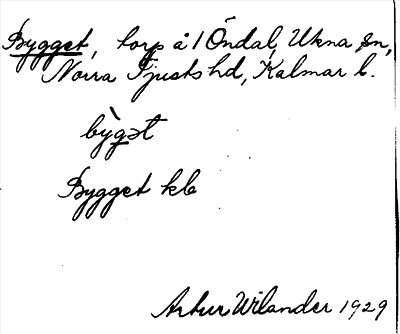 Bygget, torp å 1 Öndal, Ukna sn,
Norra Tjusts hd, Kalmar l.
by̆gət
Bygget kb
Artur Wilander 1929